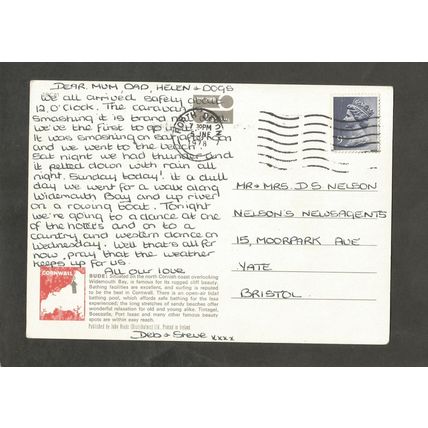 DEAR, MUM, DAD, HELEN + DOGS
We all arrived safely about
12.O'Clock. The caravan
Smashing it is brand new
we've the first to go in
It was smashing on Saturday
and we went to the beach
Sat night we had thunder and
it pelted down with rain all
night. Sunday today! it a dull
day we went for a walk along
Widemouth Bay and up river
on a rowing boat. Tonight
we're going to a dance at one
of the hotels and on to a
country and western dance on
Wednesday. Well that's all for
now, pray that the weather
keeps up for us.
All our love
Deb + Steve xxxx
CORNWALL
BUDE: Situated on the north Cornish coast overlooking
Widemouth Bay, is famous for its rugged cliff beauty.
Bathing facilities are excellent, and surfing is reputed
to be the best in Cornwall. There is an open-air tidal
bathing pool, which affords safe bathing for the less
experienced; the long stretches of sandy beaches offer
wonderful relaxation for old and young alike. Tintagel,
Boscastle, Port Isaac and many other famous beauty
spots are within easy reach.
Published by John Hinde (Distributors) Ltd., Printed in Ireland.
NORTH DEVON
PM
JNE
1978
MR + MRS. D.S. NELSON
NELSON'S NEWSAGENTS
15, MOORPARK AVE
YATE
BRISTOL.